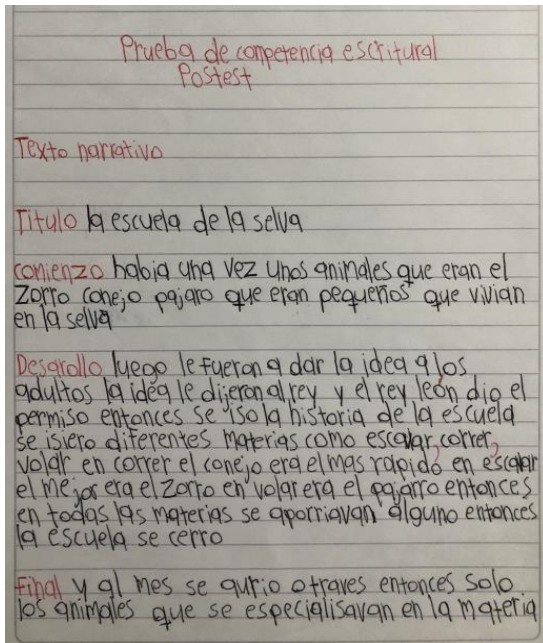 Prueba de competencia escritural
Postest
Texto narrativo
Titulo la escuela de la selva
comienzo habia una vez unos animales que eran el
zorro conejo pajaro que eran pequeños que vivian
en la selva
Desarollo luego le fueron a dar la idea a los
adultos la idea le dijeron al rey y el rey león dio el
permiso entonces se iso la historia de la escuela
se isiero diferentes materias como escalar, correr,
volar en correr el conejo era el mas rapido en escalar
el mejor era el zorro en volar era el pajarro entonces
en todas las materias se aporriavan alguno entonces
la escuela se cerro
Final y al mes se aurio otraves entonces solo
los animales que se especialisavan en la materia